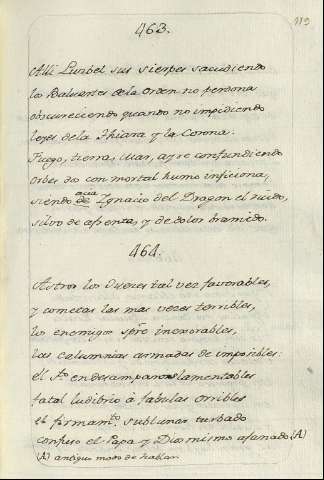 119
463.
Alli Luzbel sus sierpes sacudiendo
los Baluartes de la Orden no perdona
obscureciendo quando no impidiendo
leyes de la Thiara y la Corona:
Fuego, tierra, mar, ayre confundiendo
Orbes dos con mortal humo inficiona;
siendo acia Ignacio del Dragon el ruido,
silvo de afrenta, y de dolor bramido.
464.
Astros los Dueces tal vez favorables,
y cometas las mas veces terribles,
los enemigos spre inexorables,
las calumnias armadas de imposibles:
el Sto. en desamparos lamentables
fatal ludibrio à fabulas orribles
el firmamto. sublunar turbado
confuso el Papa y Dios mismo afanado (A)
(A) antiguo modo de hablar.